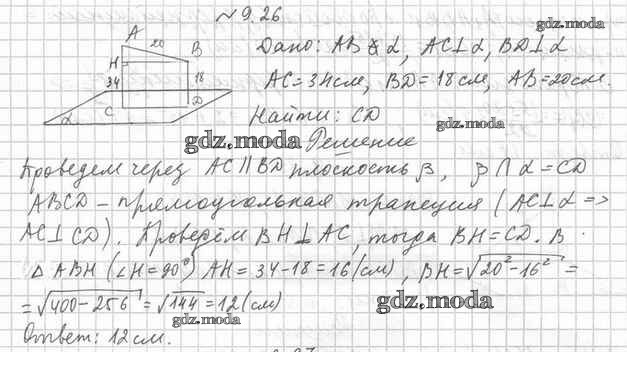 № 9.26
gdz.moda
A
20
B
Дано: AB ⊄ α, AC⊥α, BD⊥α
H
34
18
AC=34см, BD=18см, AB=20см.
C
D
α
Найти: CD
gdz.moda
gdz.moda Решение
Проведем через AC∥BD плоскость β, β∩α=CD
ABCD – прямоугольная трапеция (AC⊥α =>
AC⊥CD). Проведём BH⊥AC, тогда BH=CD. В
Δ ABH (∠H=90°) AH=34-18=16(см), BH=√20²-16² =
=√400-256 =√144=12(см)
gdz.moda
gdz.moda
Ответ: 12см.